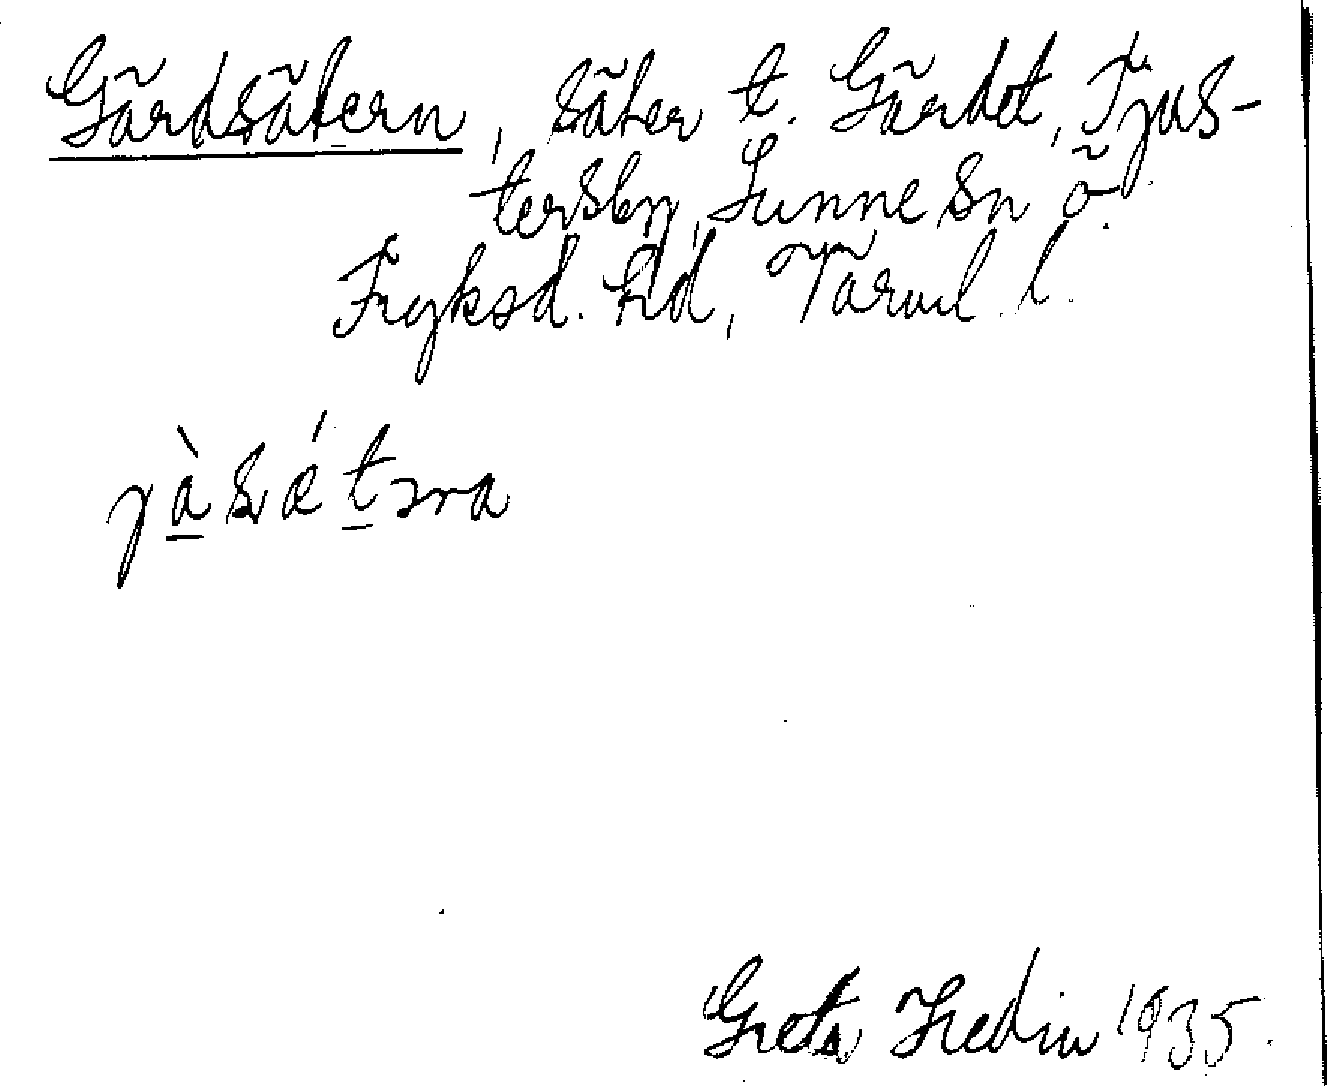 Gärdsätern, säter t. Gärdet, Tjus-
tersby, Sunne sn ö.
Fryksd. hd, Värml. l.
jàsǽtəra
Greta Hedin 1935.